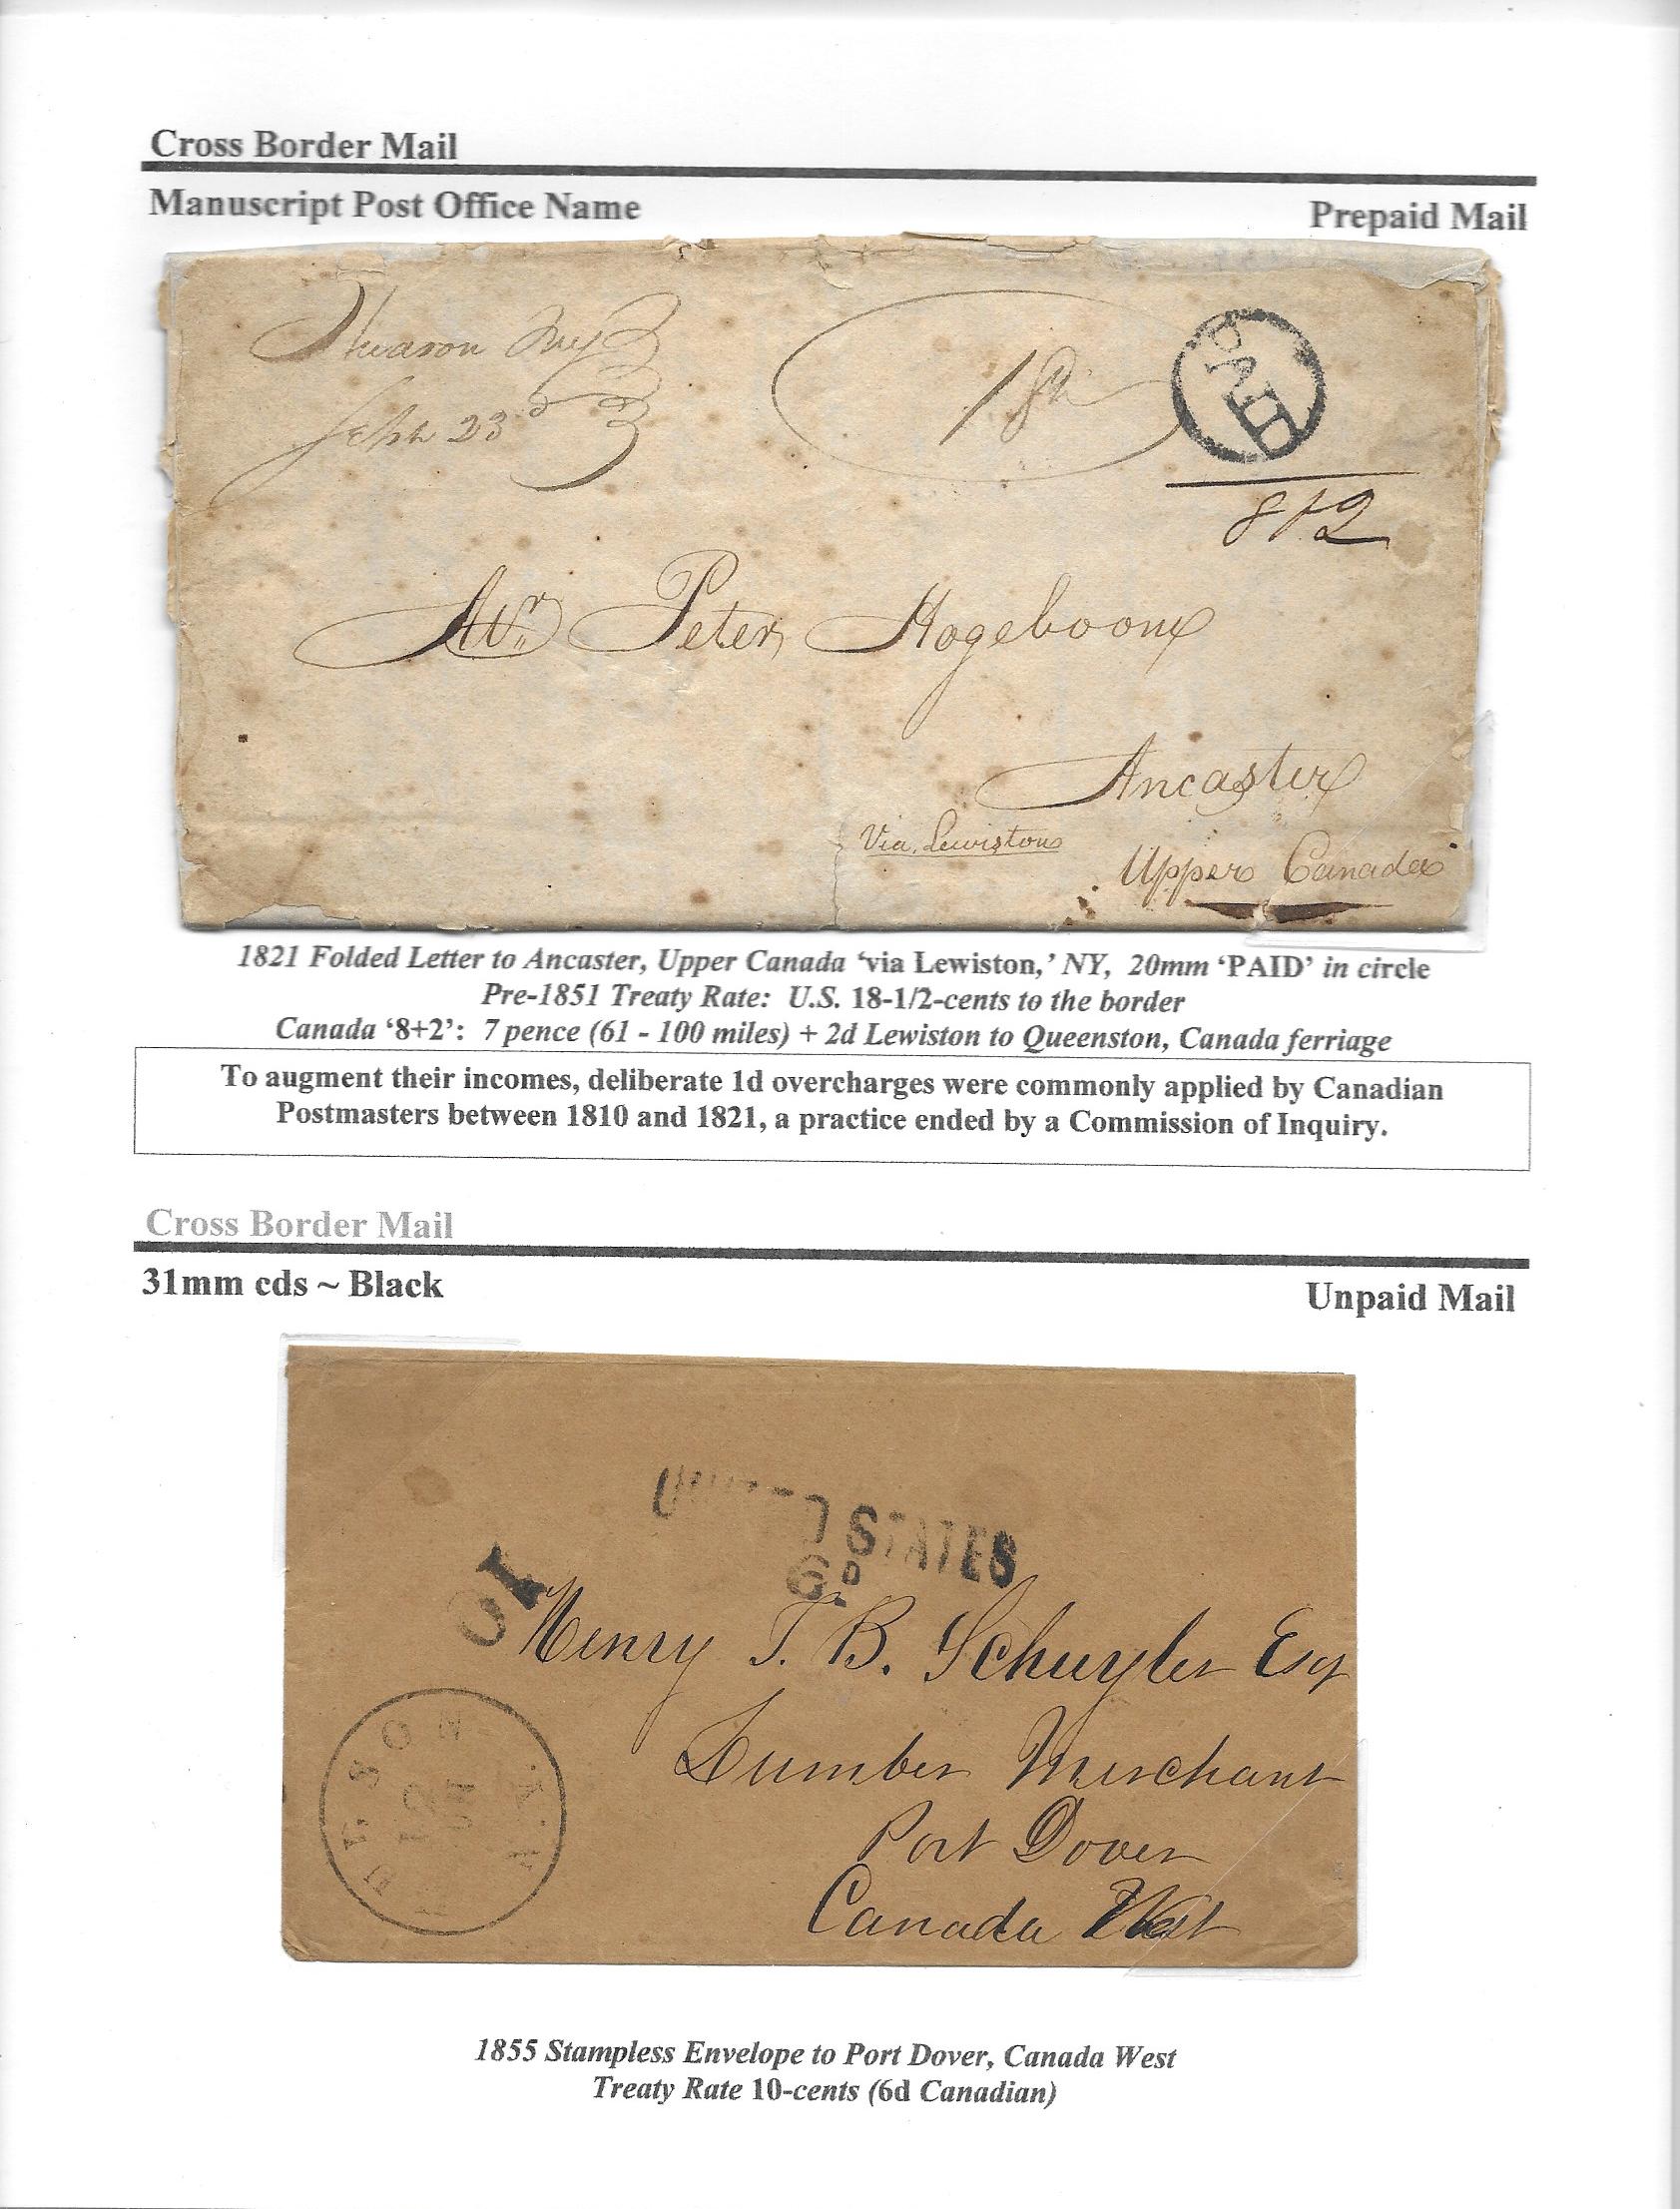 Cross Border Mail
Manuscript Post Office Name
Prepaid Mail
Sharon NY
Sept 23d
18½
PAID
8+2
Mr. Peter Hogeboom
Ancaster
Via Lewiston
Upper Canada
1821 Folded Letter to Ancaster, Upper Canada ‘via Lewiston,’ NY, 20mm ‘PAID’ in circle
Pre-1851 Treaty Rate: U.S. 18-1/2-cents to the border
Canada ‘8+2’: 7 pence (61 - 100 miles) + 2d Lewiston to Queenston, Canada ferriage
To augment their incomes, deliberate 1d overcharges were commonly applied by Canadian
Postmasters between 1810 and 1821, a practice ended by a Commission of Inquiry.
Cross Border Mail
31mm cds ~ Black
Unpaid Mail
UNITED STATES
6D
10
Henry T. B. Schuyler Esq
Lumber Merchant
Port Dover
Canada West
HUDSON N.Y.
1855 Stampless Envelope to Port Dover, Canada West
Treaty Rate 10-cents (6d Canadian)